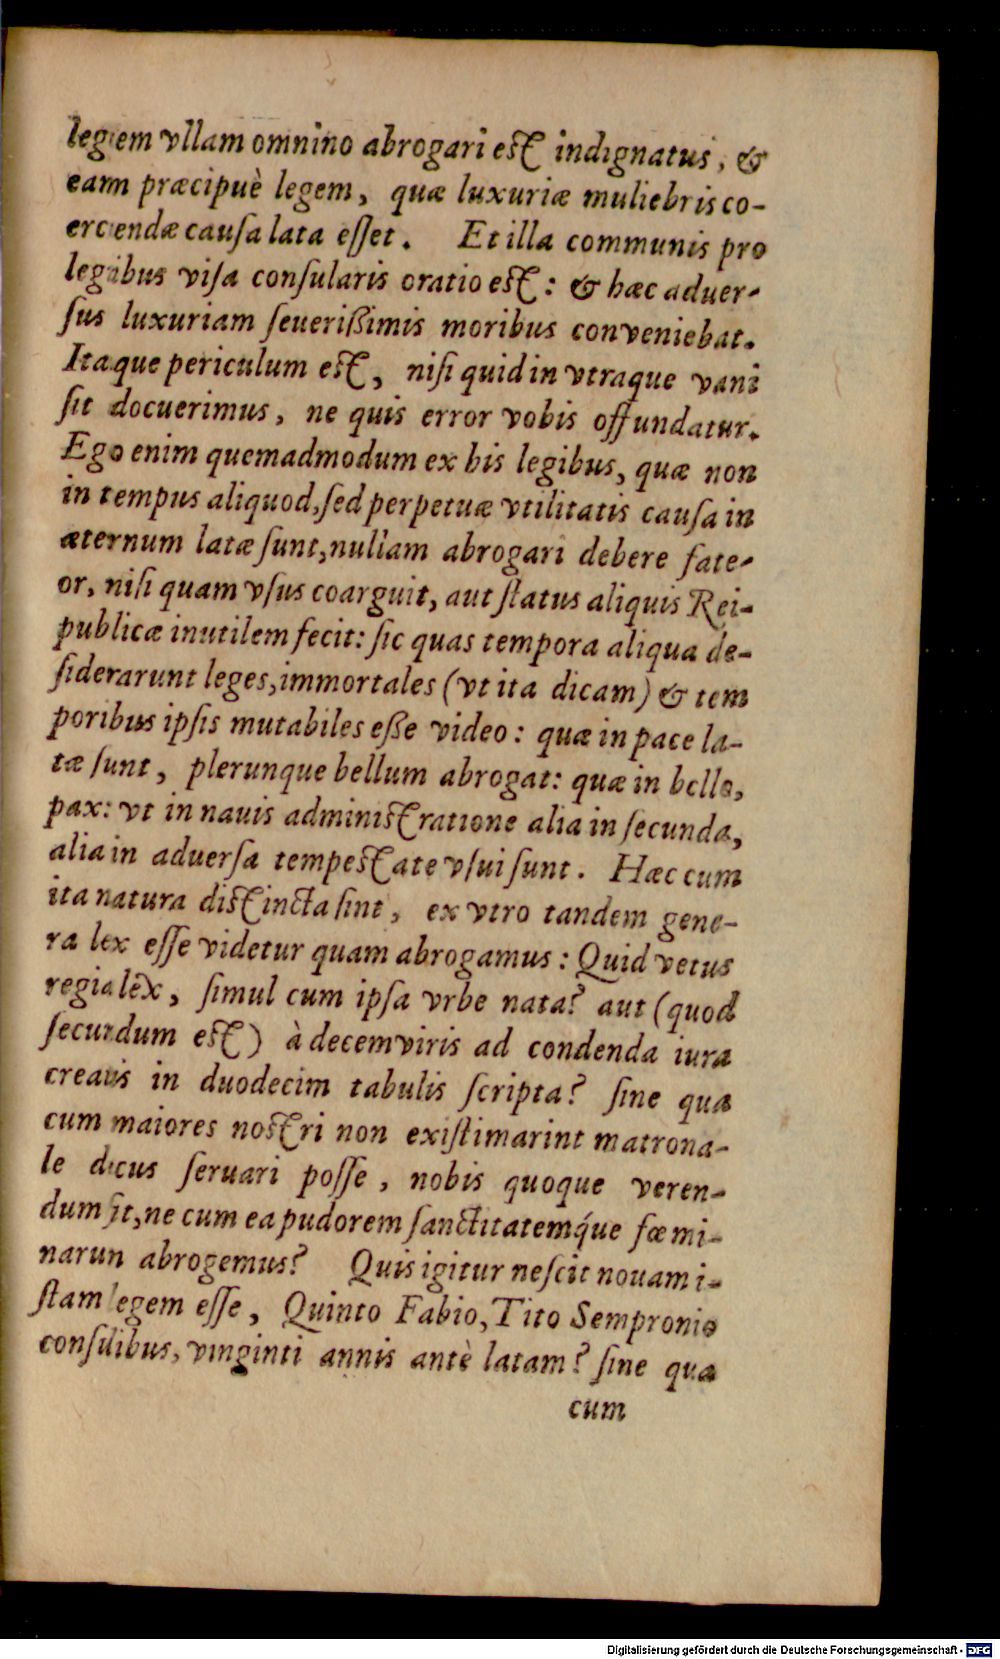 legem vllam omnino abrogari est indignatus, &
eam præcipuè legem, quæ luxuriæ muliebris co-
ercendæ causa lata esset. Et illa communis pro
legibus visa consularis oratio est: & hæc aduer-
sus luxuriam seuerißimis moribus conveniebat.
Itaque periculum est, nisi quid in vtraque vani
sit docuerimus, ne quis error vobis offundatur.
Ego enim quemadmodum ex his legibus, quæ non
in tempus aliquod, sed perpetuæ vtilitatis causa in
æternum latæ sunt, nullam abrogari debere fate-
or, nisi quam vsus coarguit, aut status aliquis Rei-
publicæ inutilem fecit: sic quas tempora aliqua de-
siderarunt leges, immortales (vt ita dicam) & tem
poribus ipsis mutabiles eße video: quæ in pace la-
tæ sunt, plerunque bellum abrogat: quæ in bello,
pax: vt in nauis administratione alia in secunda,
alia in aduersa tempestate vsui sunt. Hæc cum
ita natura distincta sint, ex vtro tandem gene-
ra lex esse videtur quam abrogamus: Quid vetus
regia lex, simul cum ipsa vrbe nata? aut (quod
secundum est) à decemviris ad condenda iura
creatis in duodecim tabulis scripta? sine qua
cum maiores nostri non existimarint matrona-
le decus seruari posse, nobis quoque veren-
dum sit, ne cum ea pudorem sanctitatemq́ue fœmi-
narum abrogemus? Quis igitur nescit nouam i-
stam legem esse, Quinto Fabio, Tito Sempronio
consulibus, vinginti annis antè latam? sine qua
cum
Digitalisierung gefördert durch die Deutsche Forschungsgemeinschaft - DFG